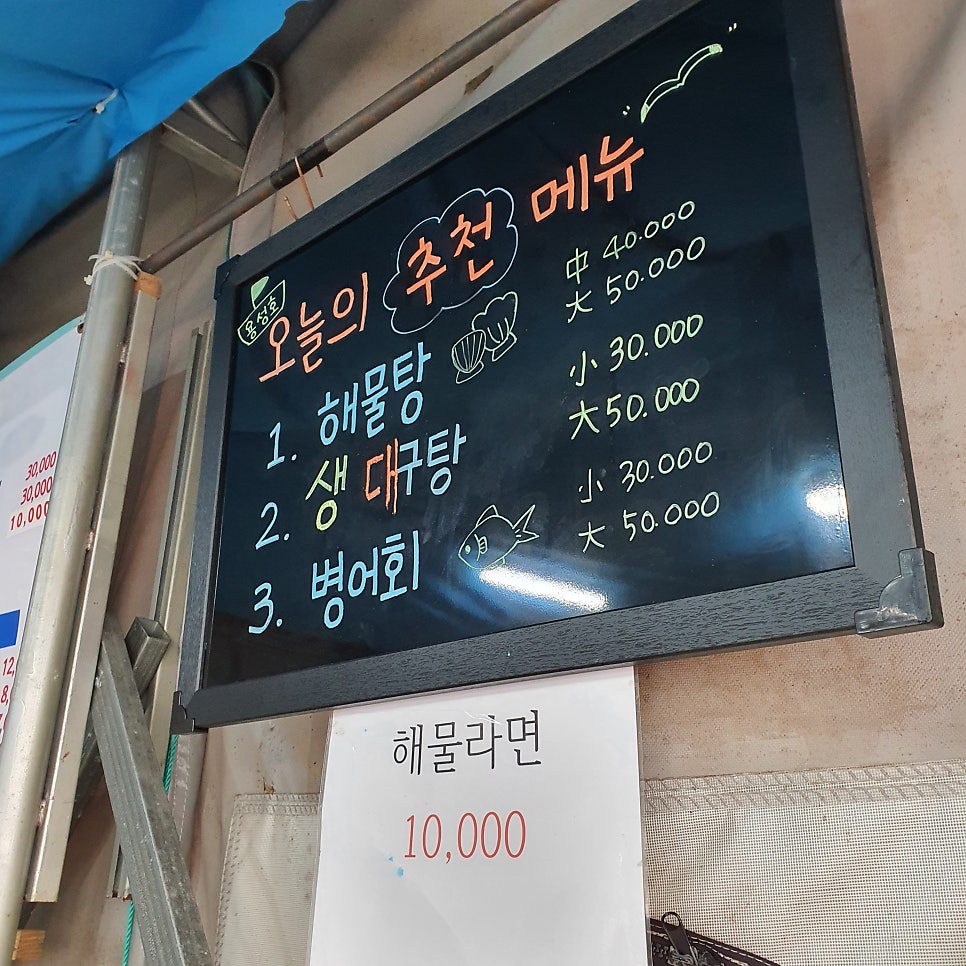 용성호
오늘의 추천 메뉴
1. 해물탕 中 40.000
大 50.000
2. 생 대구탕 小 30.000
大 50.000
3. 병어회 小 30.000
大 50.000
해물라면
10,000
30,000
30,000
10,000
12,
8,